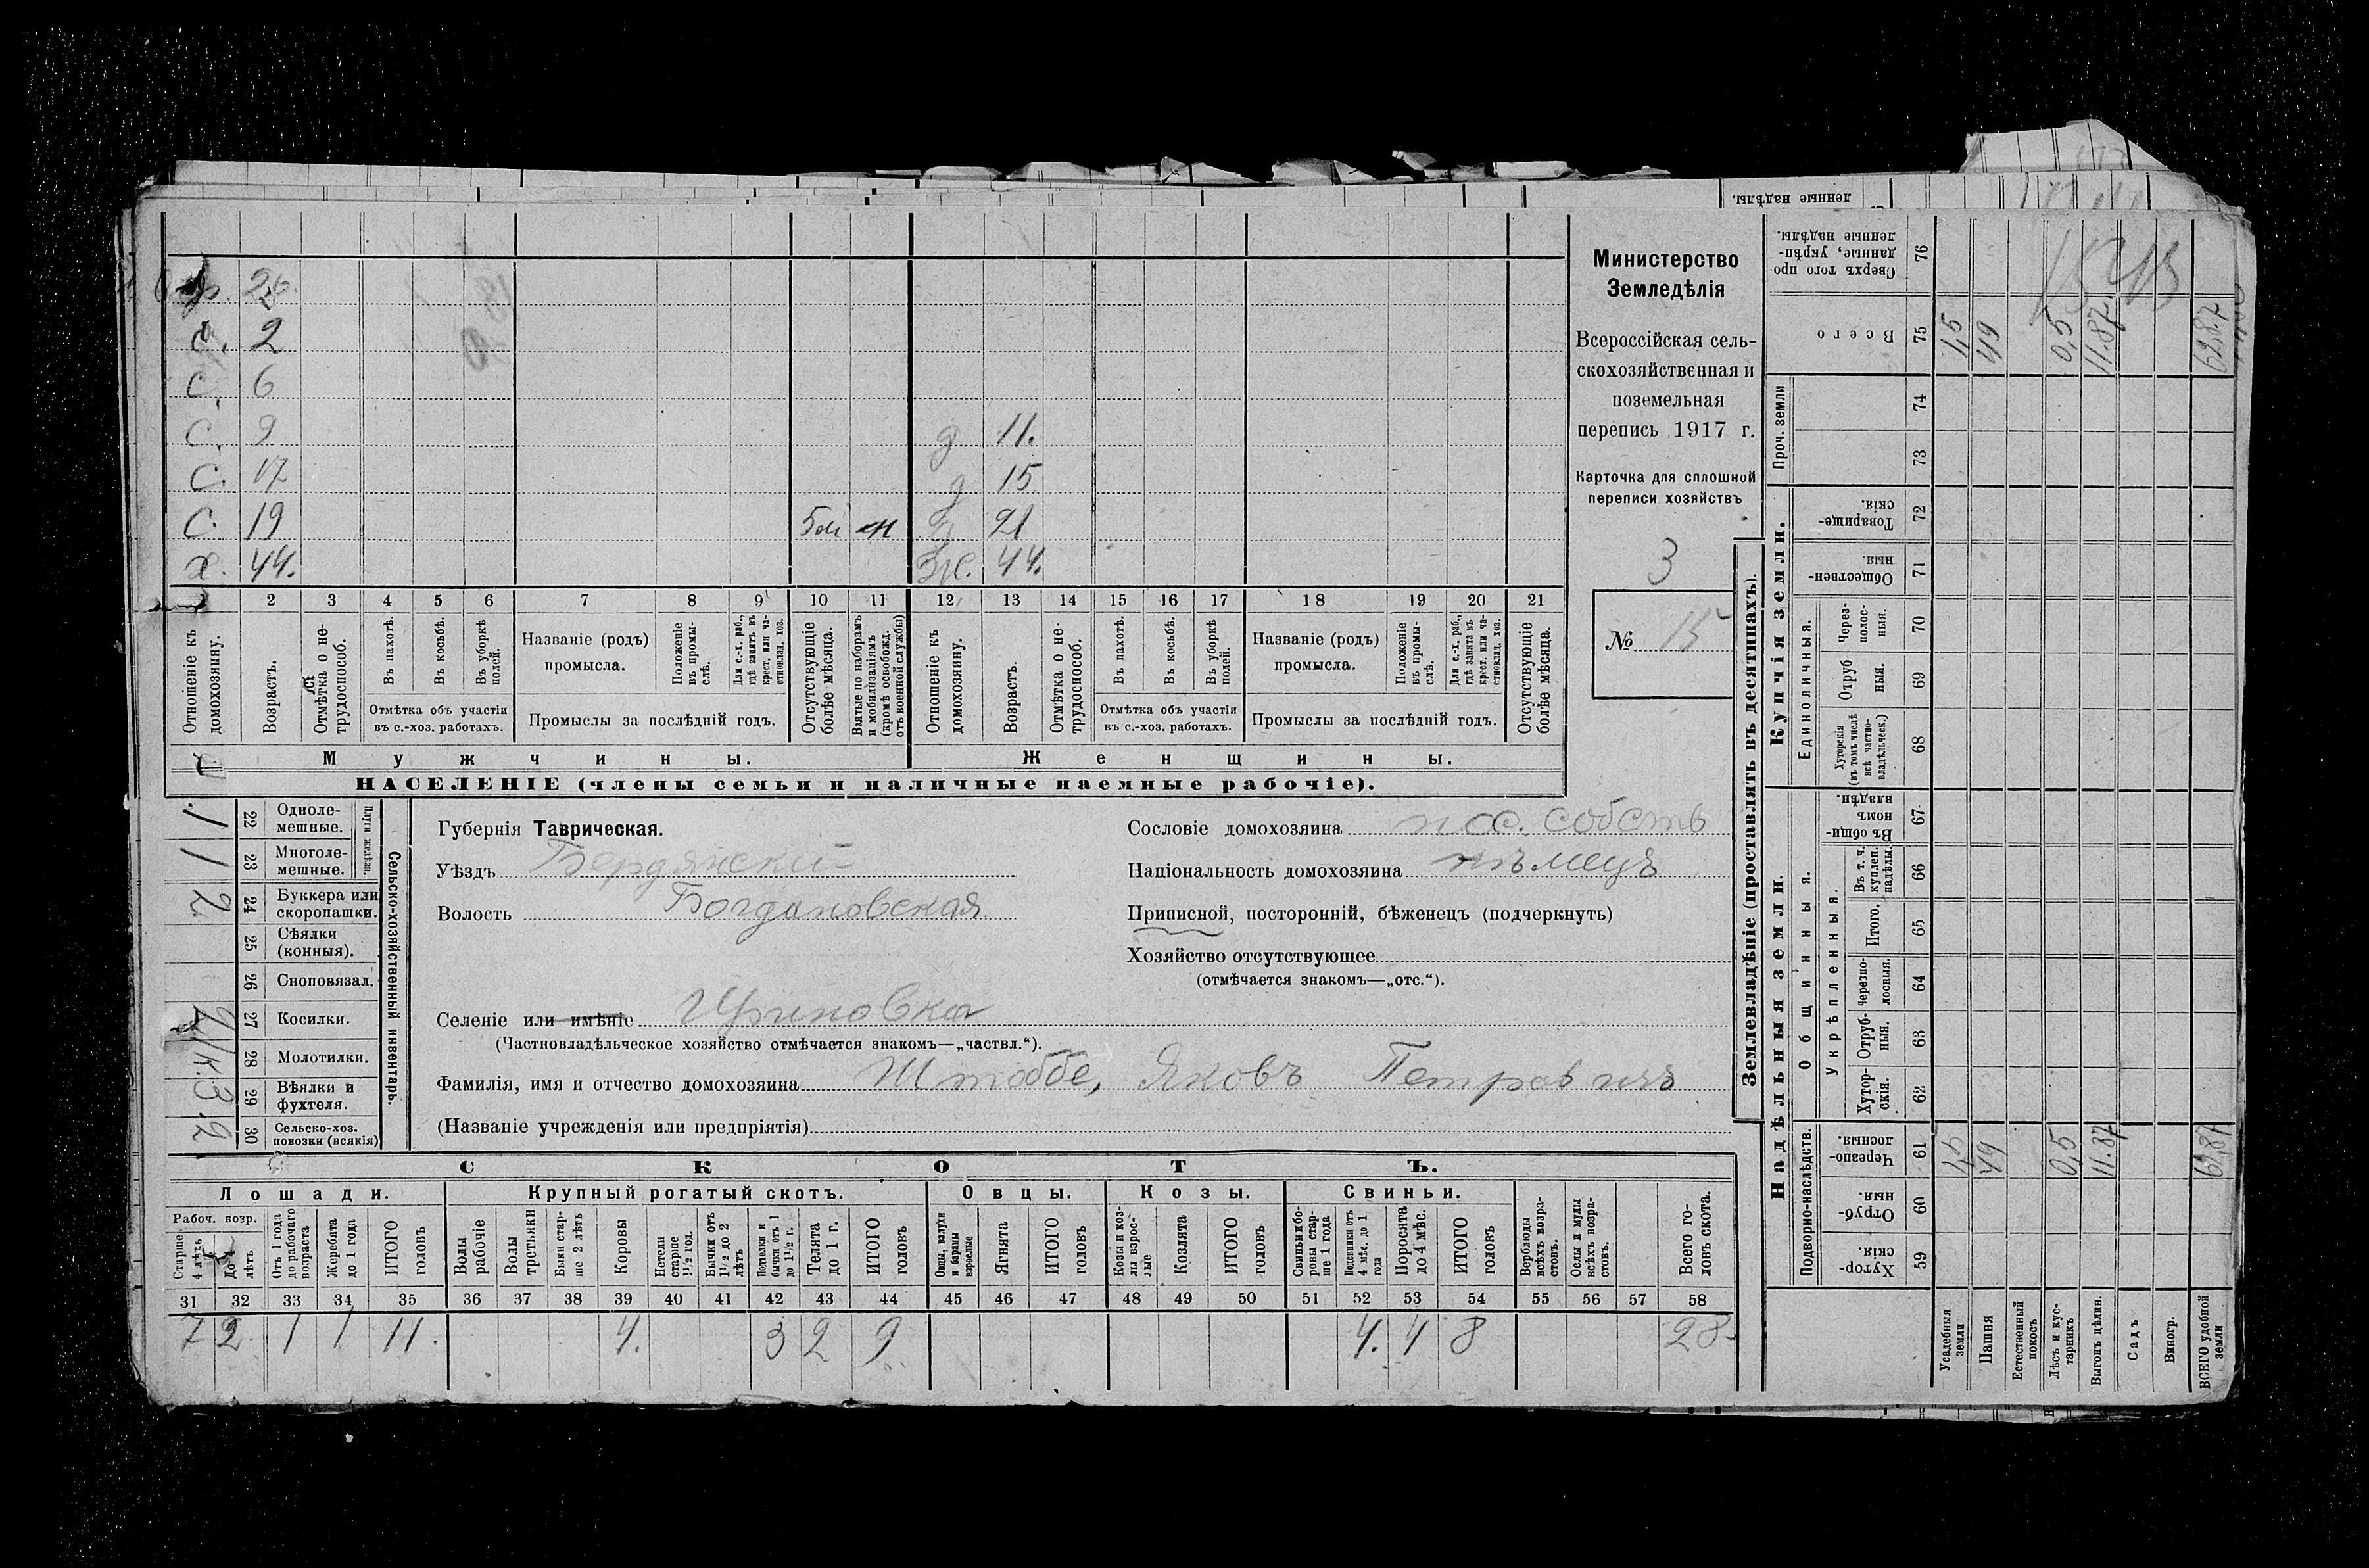 Министерство
Земледѣлія
Всероссійская сель-
скохозяйственная и
поземельная
перепись 1917 г.
Карточка для сплошной
переписи хозяйствъ
3
№ 15
2
С. 6
С. 9 д 11.
С. 17 д 15
С. 19 5м н д 21
х. 44. Ж. 44.
1 2 3 4 5 6 7 8 9 10 11 12 13 14 15 16 17 18 19 20 21
Отношеніе къ домохозяину.
Возрастъ.
Отмѣтка о не-трудоспособ.
Въ пахотѣ.
Въ косьбѣ.
Въ уборкѣ полей.
Отмѣтка объ участіи въ с.-хоз. работахъ.
Названіе (родъ) промысла.
Положеніе въ промы-слѣ.
Для с.-х. раб., гдѣ занятъ въ крест. или ча-стновлад. хоз.
Промыслы за послѣдній годъ.
Отсутствующіе болѣе мѣсяца.
Взятые по наборамъ и мобилизаціямъ (кромѣ освобожд. отъ военной службы)
Отношеніе къ домохозяину.
Возрастъ.
Отмѣтка о не-трудоспособ.
Въ пахотѣ.
Въ косьбѣ.
Въ уборкѣ полей.
Отмѣтка объ участіи въ с.-хоз. работахъ.
Названіе (родъ) промысла.
Положеніе въ промы-слѣ.
Для с.-х. раб., гдѣ занята въ крест. или ча-стновлад. хоз.
Промыслы за послѣдній годъ.
Отсутствующіе болѣе мѣсяца.
Мужчины. Женщины.
НАСЕЛЕНІЕ (члены семьи и наличные наемные рабочіе).
Сельско-хозяйственный инвентарь.
Плуги желѣзн.
1 22 Одноле-мешные.
1 23 Многоле-мешные.
2 24 Буккера или скоропашки.
25 Сѣялки (конныя).
26 Сноповязал.
27 Косилки.
1 к. 28 Молотилки.
3. 29 Вѣялки и фухтеля.
2 30 Сельско-хоз. повозки (всякія)
Губернія Таврическая.
Уѣздъ Бердянскій
Волость Богдановская
Селеніе или имѣніе
(Частновладѣльческое хозяйство отмѣчается знакомъ—„частвл.“).
Фамилія, имя и отчество домохозяина Штоббе, Яковъ Петровичъ
(Названіе учрежденія или предпріятія)
Сословіе домохозяина пос. собств
Національность домохозяина нѣмецъ
Приписной, посторонній, бѣженецъ (подчеркнуть)
Хозяйство отсутствующее
(отмѣчается знакомъ—„отс.“).
СКОТЪ.
Лошади. Крупный рогатый скотъ. Овцы. Козы. Свиньи.
Рабоч. возр.
Старше 4 лѣтъ
До 4 лѣтъ
Отъ 1 года до рабочаго возраста
Жеребята до 1 года
ИТОГО головъ
Волы рабочіе
Волы третьяки
Быки стар-ше 2 лѣтъ
Коровы
Нетели старше 1½ год.
Бычки отъ 1½ до 2 лѣтъ
Подтелки и бычки отъ 1 до 1½ г.
Телята до 1 г.
ИТОГО головъ
Овцы, валухи и бараны взрослые
Ягнята
ИТОГО головъ
Козы и коз-лы взрос-лые
Козлята
ИТОГО головъ
Свиньи и бо-ровы стар-ше 1 года
Подсвинки отъ 4 мѣс. до 1 года
Поросята до 4 мѣс.
ИТОГО головъ
Верблюды всѣхъ возра-стовъ.
Ослы и мулы всѣхъ возра-стовъ.
Всего го-ловъ скота.
31 32 33 34 35 36 37 38 39 40 41 42 43 44 45 46 47 48 49 50 51 52 53 54 55 56 57 58
7 2 1 1 11. 4. 3 2 9 4. 4 8 28
Землевладѣніе (проставлять въ десятинахъ).
Надѣльныя земли. Купчія земли.
Подворно-наслѣдств.
Общинныя.
Укрѣпленныя.
Единоличныя.
Проч. земли
Хутор-скія. 59
Отруб-ныя. 60
Черезпо-лосныя. 61
Хутор-скія. 62
Отруб-ныя. 63
Черезпо-лосныя. 64
Итого. 65
Въ т. ч. куплен. надѣлы. 66
Въ общи-номъ владѣн. 67
Хуторскія (въ томъ числѣ всѣ частно-владѣльческ.) 68
Отруб ныя. 69
Через-полос-ныя. 70
Обществен-ныя 71
Товарище-скія. 72
73
74
Всего 75
Сверхъ того про-данные, укрѣп-ленные надѣлы. 76
Усадебныя земли 1,5 1,5
Пашня 49 49
Естественный покосъ
Лѣсъ и кус-тарникъ 0,5 0,5
Выгонъ цѣлин. 11.87 11.87.
Садъ
Виногр.
ВСЕГО удобной земли 62,87 62,87
ленные надѣлы.